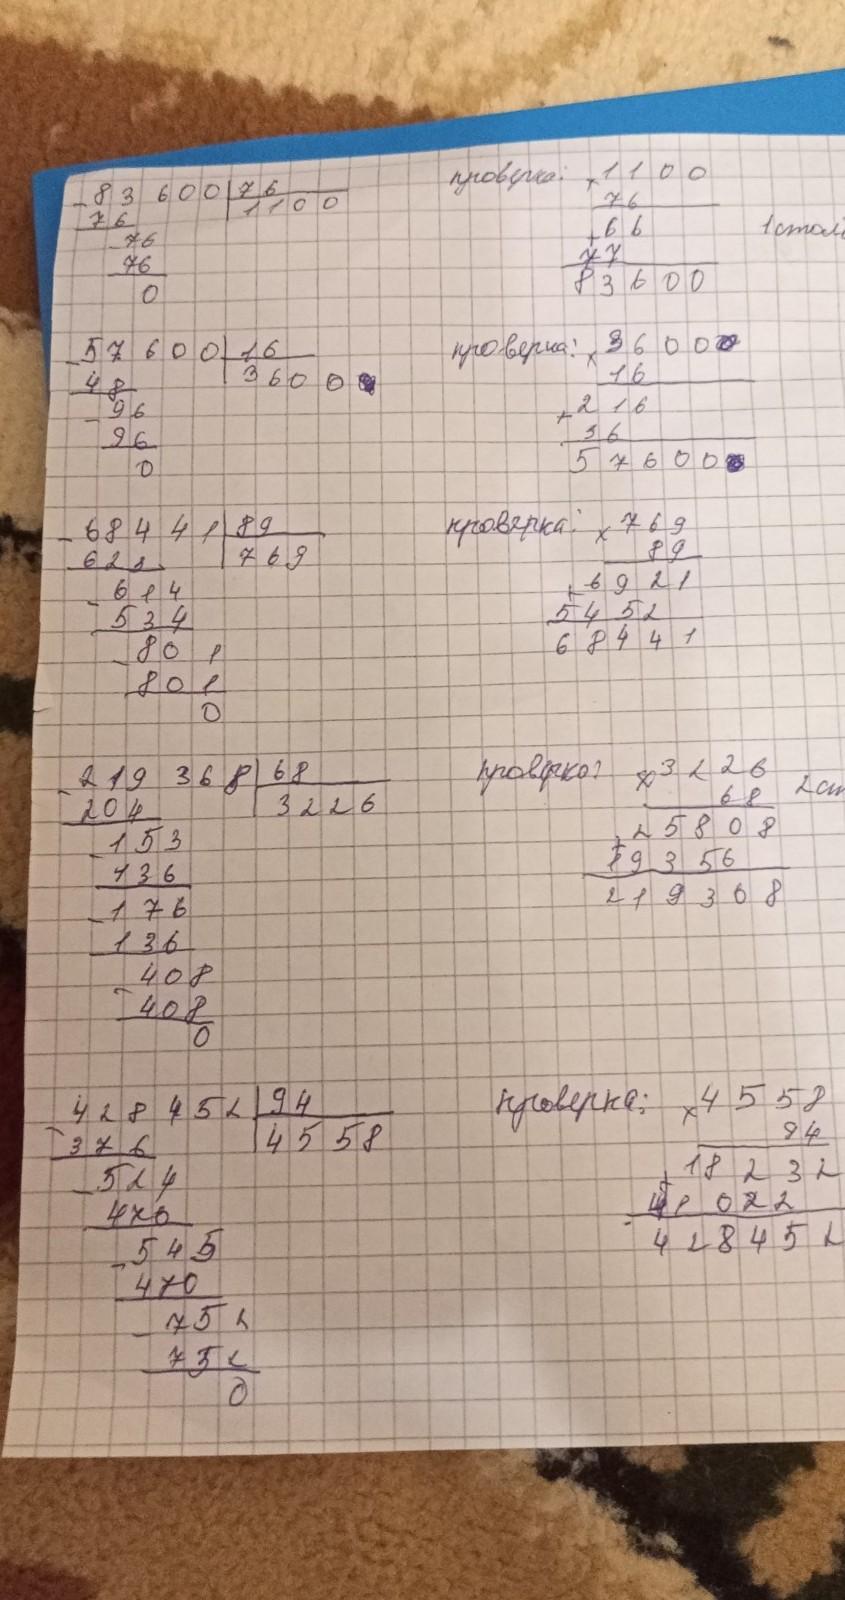 83600 76 проверка: × 1100
76 1100 76
76 66
76 77
0 83600
57600 16 проверка: × 3600
48 3600 16
96 + 216
96 36
0 57600
68441 89 проверка: × 769
623 769 89
614 + 6921
534 5452
801 68441
801
0
219368 68 проверка: × 3226
204 3226 68
153 + 25808
136 19356
176 219368
136
408
408
0
428452 94 проверка: × 4558
376 4558 94
524 + 18232
470 41022
545 428452
470
752
752
0